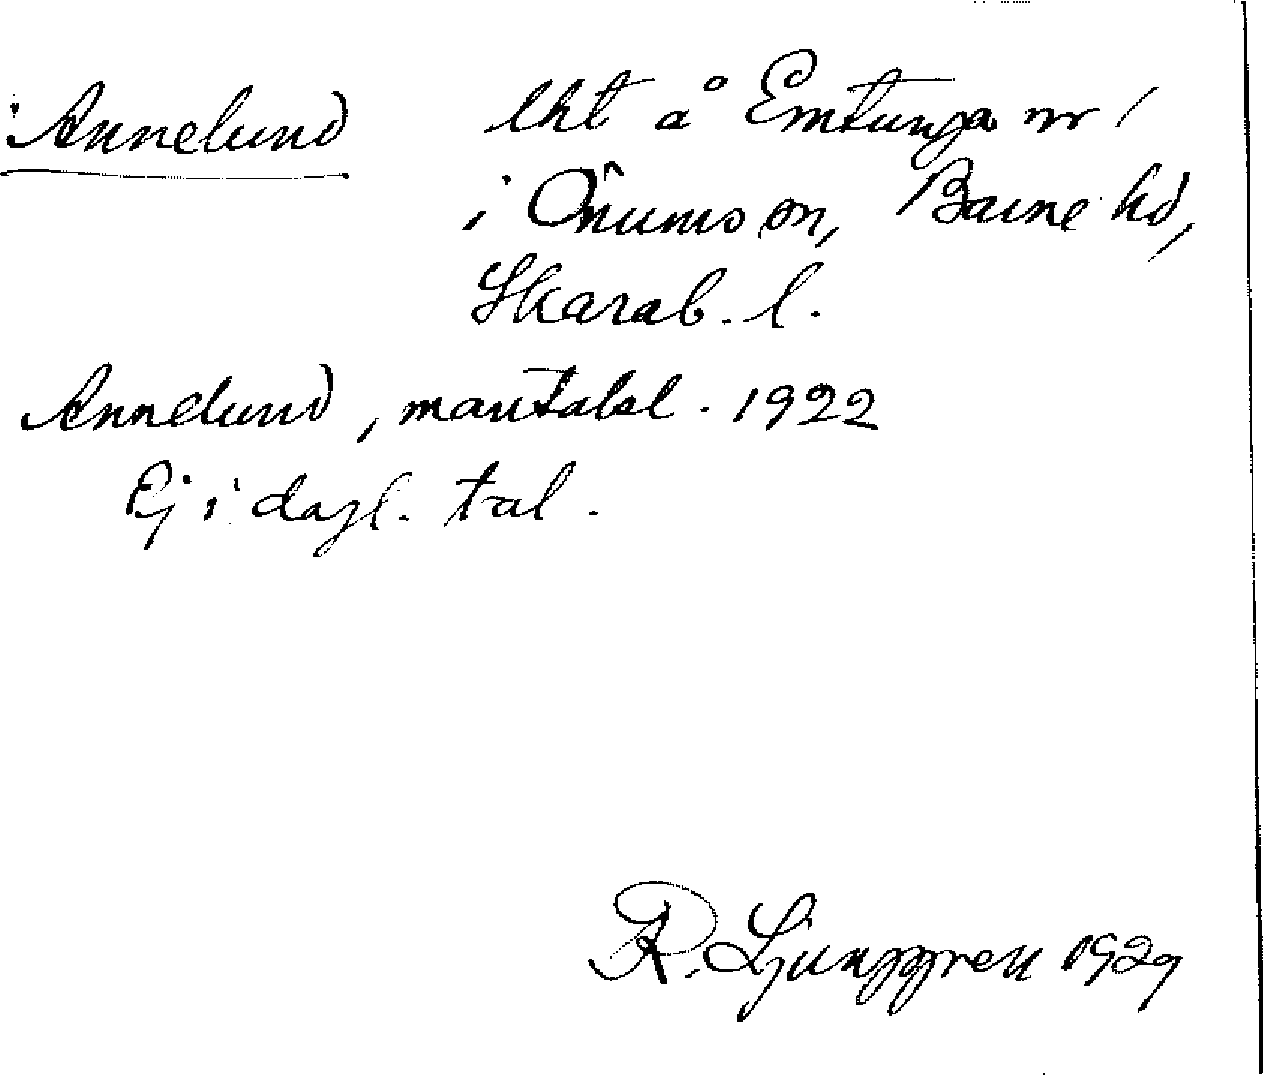 Annelund lht å Emtunga nr 1
i Önums sn, Barne hd,
Skarab. l.
Annelund, mantalsl. 1922
Ej i dagl. tal.
R. Ljunggren 1929